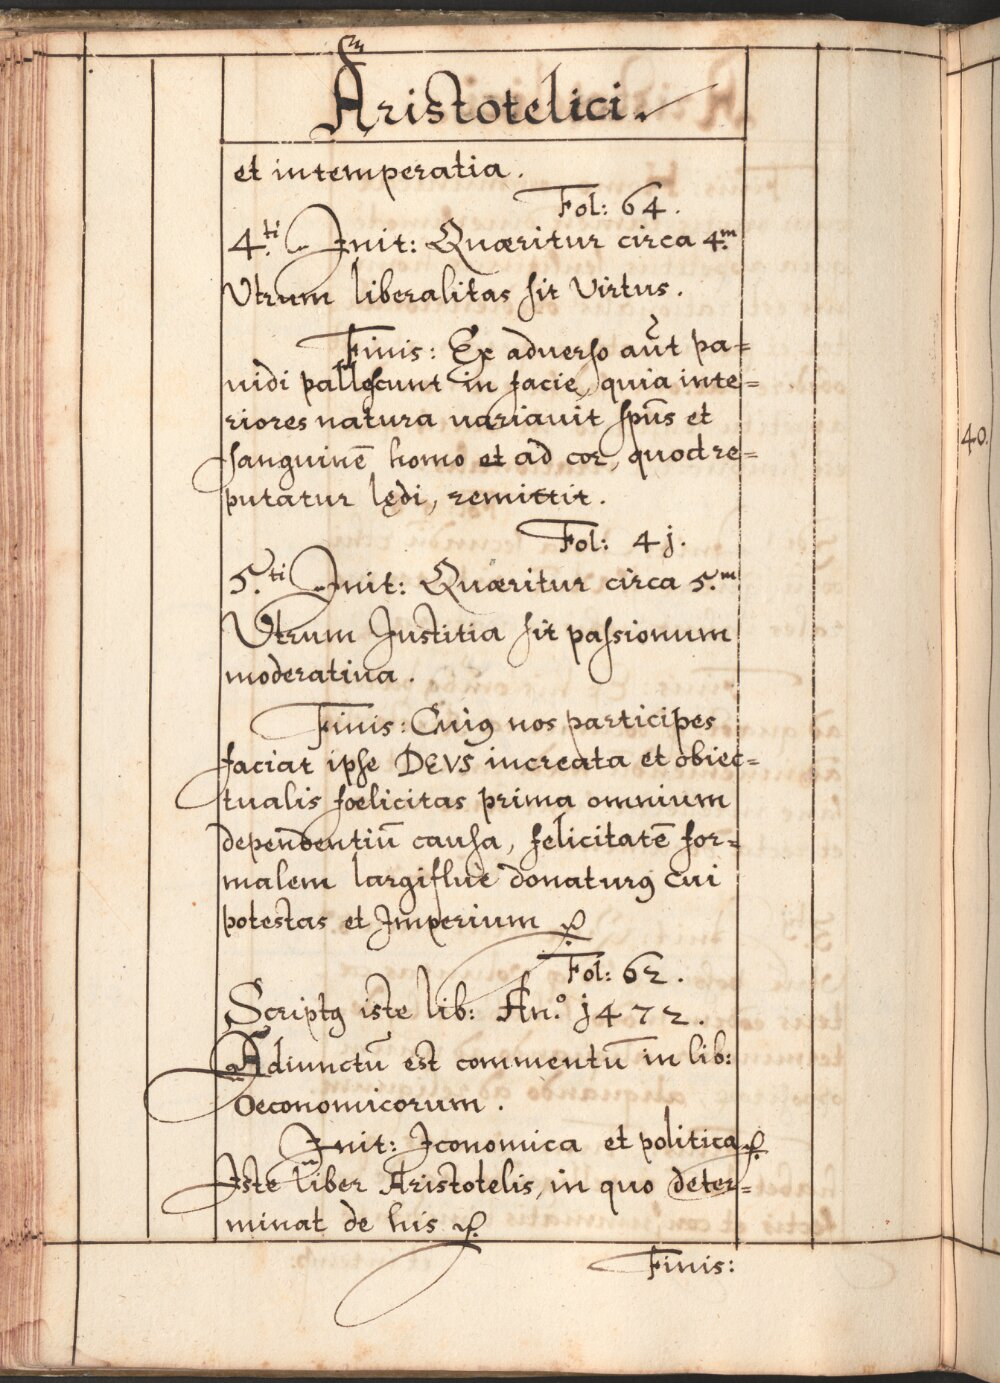 Aristotelici.
et intemperatia.
Fol: 64.
4.ti Init: Quæritur circa 4.m
Vtrum liberalitas sit Virtus.
Finis: Ex aduerso aut̃ pa=
uidi pallescunt in facie, quia inte=
riores natura uariauit sp̃us et
sanguinẽ homo et ad cor, quod re=
putatur lędi, remittit.
Fol: 4j.
5.ti Init: Quæritur circa 5.m
Vtrum Justitia sit passionum
moderatiua.
Finis: Cuiꝰ nos participes
faciat ipse DEVS increata et obiec=
tualis foelicitas prima omnium
dependentiũ causa, felicitatẽ for=
malem largifluè donaturꝰ cui
potestas et Imperium ꝛc.
Fol: 62.
Scriptꝰ iste lib: An.º j472.
Adiunctũ est commentũ in lib:
Oeconomicorum.
Init: Iconomica et politica ꝛc.
Iste liber Aristotelis, in quo deter=
minat de his ꝛc.
Finis:
40.